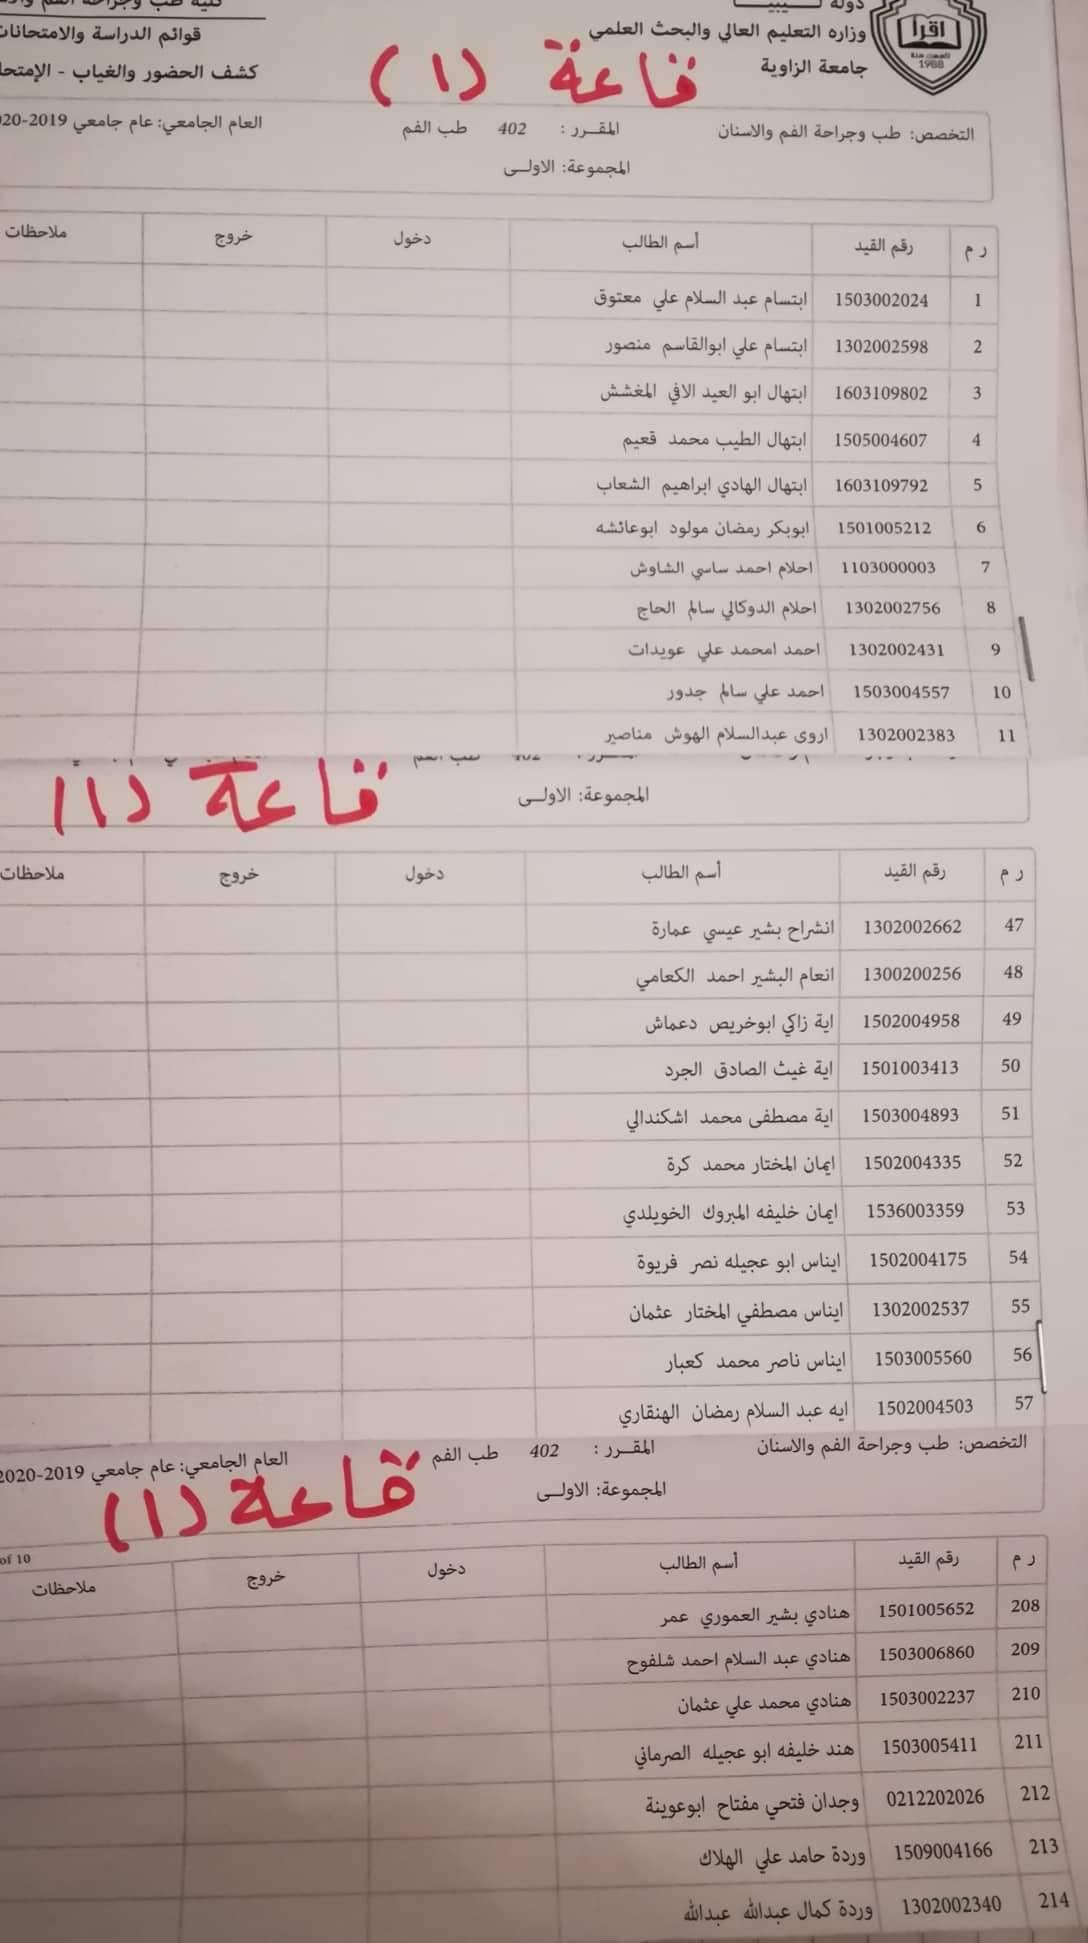 دولة ليبيا
وزاره التعليم العالي والبحث العلمي
جامعة الزاوية
اقرأ
1988
كلية طب وجراحة الفم
قوائم الدراسة والامتحانات
كشف الحضور والغياب - الإمتحا
قاعة (١)
التخصص: طب وجراحة الفم والاسنان المقـرر : 402 طب الفم العام الجامعي: عام جامعي 2019-20
المجموعة: الاولـى
ر م رقم القيد أسم الطالب دخول خروج ملاحظات
1 1503002024 ابتسام عبد السلام علي معتوق
2 1302002598 ابتسام علي ابوالقاسم منصور
3 1603109802 ابتهال ابو العيد الافي المغشش
4 1505004607 ابتهال الطيب محمد قعيم
5 1603109792 ابتهال الهادي ابراهيم الشعاب
6 1501005212 ابوبكر رمضان مولود ابوعائشه
7 1103000003 احلام احمد ساسي الشاوش
8 1302002756 احلام الدوكالي سالم الحاج
9 1302002431 احمد امحمد علي عويدات
10 1503004557 احمد علي سالم جدور
11 1302002383 اروى عبدالسلام الهوش مناصير
402 طب الفم
قاعة (١)
المجموعة: الاولـى
ر م رقم القيد أسم الطالب دخول خروج ملاحظات
47 1302002662 انشراح بشير عيسي عمارة
48 1300200256 انعام البشير احمد الكعامي
49 1502004958 اية زاكي ابوخريص دعماش
50 1501003413 اية غيث الصادق الجرد
51 1503004893 اية مصطفى محمد اشكندالي
52 1502004335 ايمان المختار محمد كرة
53 1536003359 ايمان خليفه المبروك الخويلدي
54 1502004175 ايناس ابو عجيله نصر فريوة
55 1302002537 ايناس مصطفي المختار عثمان
56 1503005560 ايناس ناصر محمد كعبار
57 1502004503 ايه عبد السلام رمضان الهنقاري
التخصص: طب وجراحة الفم والاسنان المقـرر : 402 طب الفم العام الجامعي: عام جامعي 2019-2020
المجموعة: الاولـى
قاعة (١)
of 10
ر م رقم القيد أسم الطالب دخول خروج ملاحظات
208 1501005652 هنادي بشير العموري عمر
209 1503006860 هنادي عبد السلام احمد شلفوح
210 1503002237 هنادي محمد علي عثمان
211 1503005411 هند خليفه ابو عجيله الصرماني
212 0212202026 وجدان فتحي مفتاح ابوعوينة
213 1509004166 وردة حامد علي الهلاك
214 1302002340 وردة كمال عبدالله عبدالله